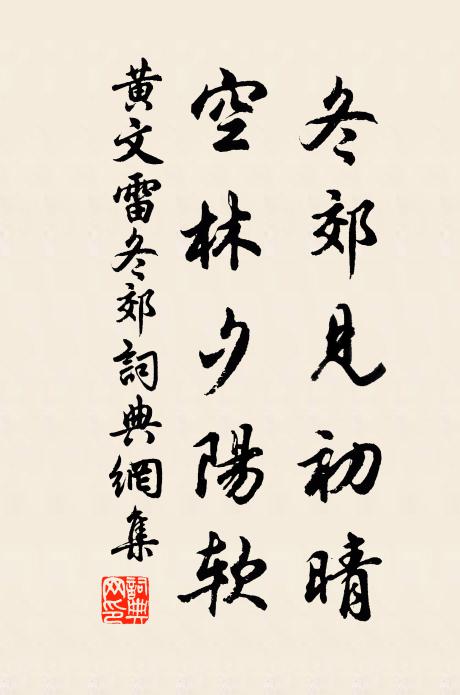 冬郊見初晴
空林夕陽軟
黃文雷冬郊詞典網集
詞典
网印